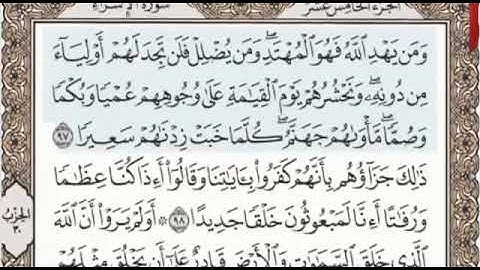 الجزء الخامس عشر
سورة الإسراء
وَمَن يَهْدِ ٱللَّهُ فَهُوَ ٱلْمُهْتَدِۖ وَمَن يُضْلِلْ فَلَن تَجِدَ لَهُمْ أَوْلِيَآءَ
مِن دُونِهِۦۖ وَنَحْشُرُهُمْ يَوْمَ ٱلْقِيَٰمَةِ عَلَىٰ وُجُوهِهِمْ عُمْيًا وَبُكْمًا
وَصُمًّاۖ مَّأْوَىٰهُمْ جَهَنَّمُۖ كُلَّمَا خَبَتْ زِدْنَٰهُمْ سَعِيرًا ٩٧
ذَٰلِكَ جَزَآؤُهُم بِأَنَّهُمْ كَفَرُوا۟ بِـَٔايَٰتِنَا وَقَالُوٓا۟ أَءِذَا كُنَّا عِظَٰمًا
وَرُفَٰتًا أَءِنَّا لَمَبْعُوثُونَ خَلْقًا جَدِيدًا ٩٨ ۞ أَوَلَمْ يَرَوْا۟ أَنَّ ٱللَّهَ
ٱلَّذِى خَلَقَ ٱلسَّمَٰوَٰتِ وَٱلْأَرْضَ قَادِرٌ عَلَىٰٓ أَن يَخْلُقَ مِثْلَهُمْ
الحزب
٣٠